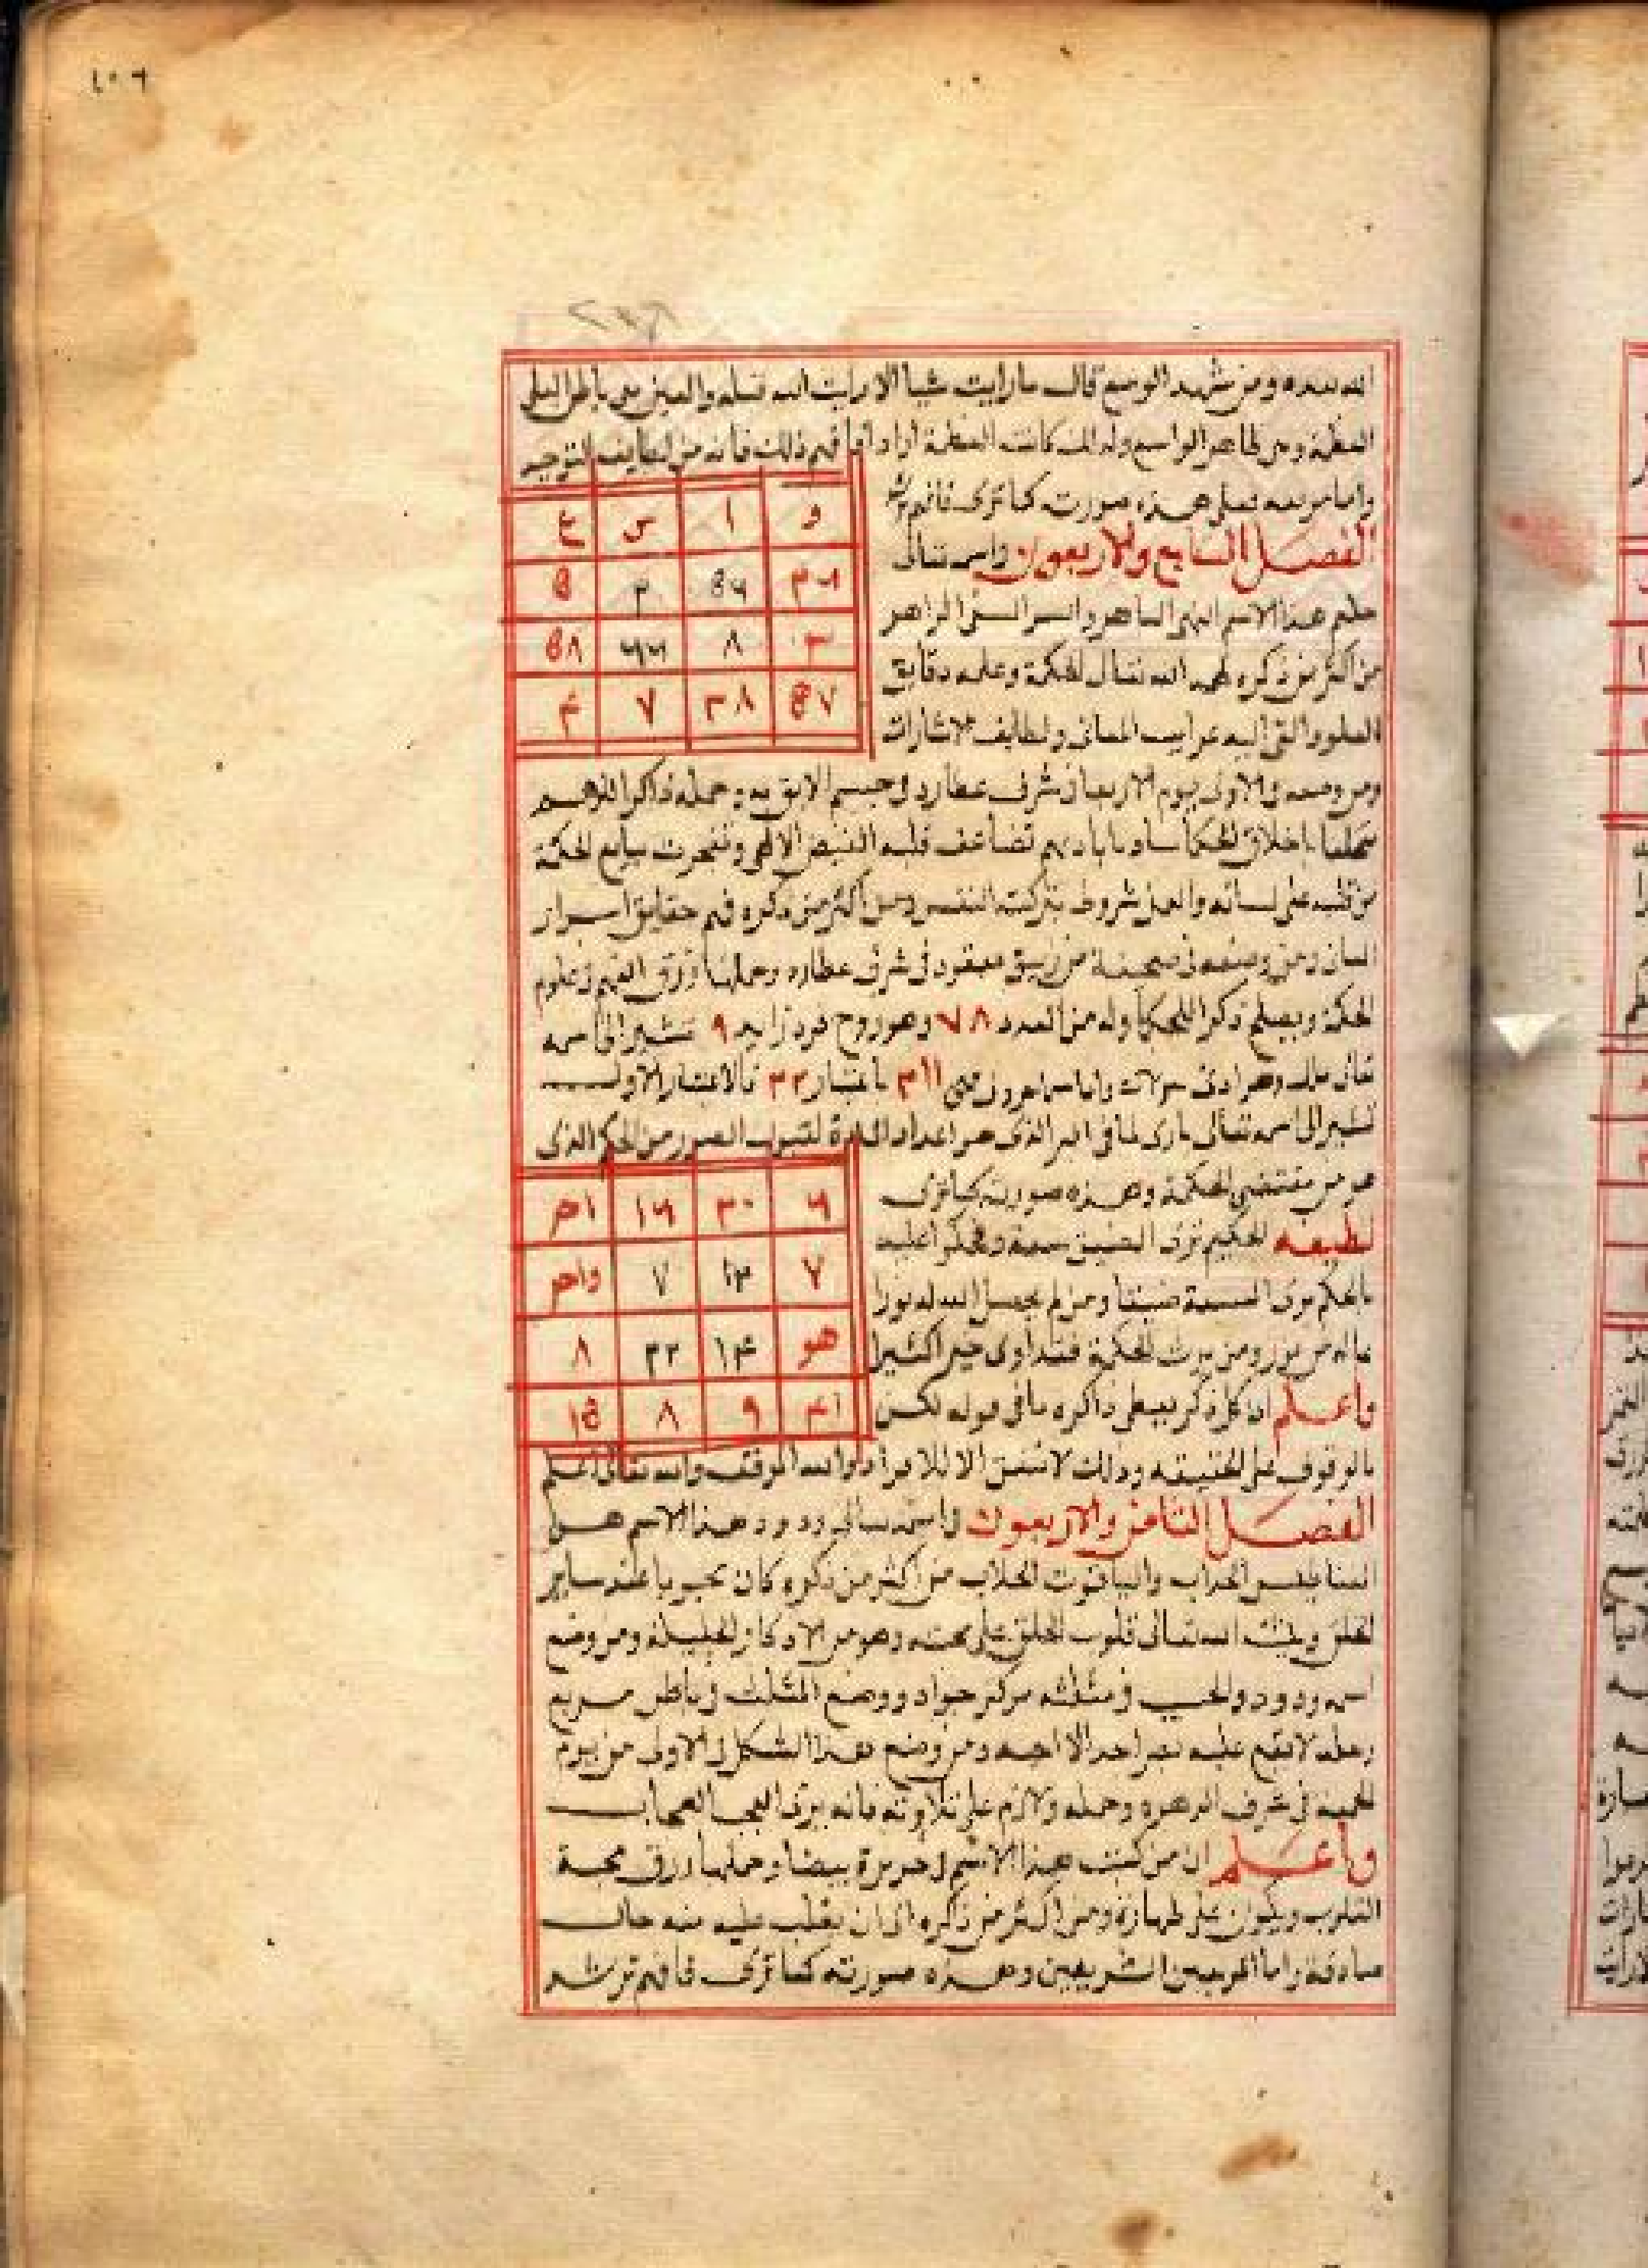 الله بعده ومن شهد الوسع قال ما رايت شيا الا رايت الله قبله والعين هي باطن العلي
العظمة ومن ظاهر الواسع ولذلك كانت العظمة ازار فافهم ذلك فانه من لطايف التوحيد
واما مربعه فعلى هذه صورته كما ترى فافهم ترشد
و ا س ع
٥
٣ ٨ ٦٦ ٥٨
٥٧ ٣٨ ٧ ٤
الفصل السابع والاربعون في اسمه تعالى
حكيم هذا الاسم البهي الباهر والسر السني الزاهر
من اكثر من ذكره الهمه الله تعالى الحكمة وعلمه دقايق
العلوم والقي اليه غرايب المعاني ولطايف الاشارات
ومن وضعه في الاولى يوم الاربعا في شرف عطارد في جسم لايق به وحمله ذاكرا للاسم
متخلقا باخلاق الحكما متادبا بادابهم تضاعف قلبه الفيض الالهي وتفجرت ينابيع الحكمة
من قلبه على لسانه والعمل مشروط بتزكية النفس ومن اكثر من ذكره فهم حقايق اسرار
ومن وضعه في صحيفة من زيبق معقود في شرف عطارد وحملها رزق الفهم في علوم
الحكمة ويصلح ذكرا للحكما وله من العدد ٧٨ وهو زوج فرد زايد ٩ تشير الى اسمه
تعالى ملك وهو اذن واما اسما حروفه فهي ٣١١ باعتبار ٣٣ فالاعتبار الاول
تشير الى اسمه تعالى باري لما في البر الذي هو اعداد المادة لقبول الصور من الحكم الذي
هو من مقتضى الحكمة وهذه صورته كما ترى
٦ ٣٠ ١٦ احد
٧ ١٣ ٧ واحد
هو ١٤ ٣٢ ٨
٣١ ٩ ٨ ١٥
لطيفة الحكيم يرى الضيق سعة والمحكوم عليه
بالحكم يرى السعة ضيقا ومن لم يجعل الله له نورا
فما له من نور ومن يوت الحكمة فقد اوتي خيرا كثيرا
واعلم ان كل ذكر يعطي ذاكره ما في قوله لكن
بالوقوف على الحقيقة وذلك لا يتفق الا للافراد والله الموفق والله تعالى اعلم
الفصل الثامن والاربعون في اسمه تعالى ودود هذا الاسم هو
المغناطيس الجذاب والياقوت الخلاب من اكثر من ذكره كان محبوبا عند ساير
الخلق ويثبت الله تعالى قلوب الخلق على محبته وهو من الاذكار الجليلة ومن وضع
اسمه ودود والحب في مثلثه مركز جواد ووضع المثلث في باطن مربع
وحمله لا يقع عليه بصر احد الا احبه ومن وضع هذا الشكل في الاولى من يوم
الجمعة في شرف الزهرة وحمله ولازم على تلاوته فانه يرى العجب العجاب
واعلم ان من كتب هذا الاسم في حريرة بيضا وحملها رزق محبة
القلوب ويكون على طهارة ومن اكثر من ذكره الى ان يغلب عليه منه حال
صادقة واما المربعين الشريفين وهذه صورته كما ترى فافهم ترشد